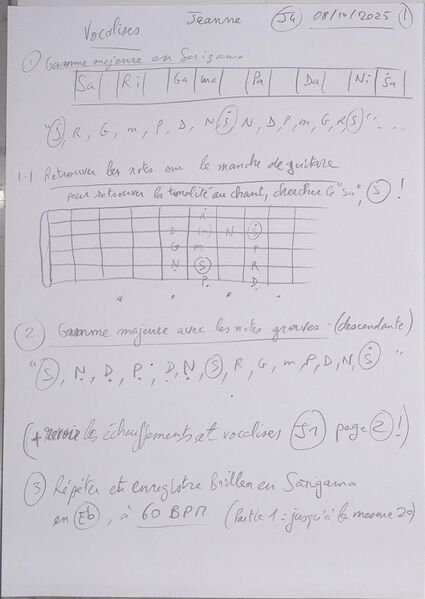 Vocalises Jeanne S4 08/10/2025 1
1 Gamme majeure en Sargama
Sa | | Ri | | Ga | ma | | Pa | | Da | | Ni | Ṡa
"S, R, G, m, P, D, N Ṡ N, D, P, m, G, R S" ...
1-1 Retrouver les notes sur le manche de guitare
pour retrouver la tonalité au chant, chercher le "Sa", S !
Ṙ
D (n) N Ṡ
G m P
Ṇ S R
P̣ Ḍ
2 Gamme majeure avec les notes graves - (descendante)
"S, Ṇ, Ḍ, P̣, Ḍ, Ṇ, S, R, G, m, P, D, N, Ṡ"
(+ revoir les échauffements et vocalises S1 page 2 !)
3 Répéter et enregistre Briller en Sargama
en Eb, à 60 BPM (Partie 1 : jusqu'à la mesure 20)